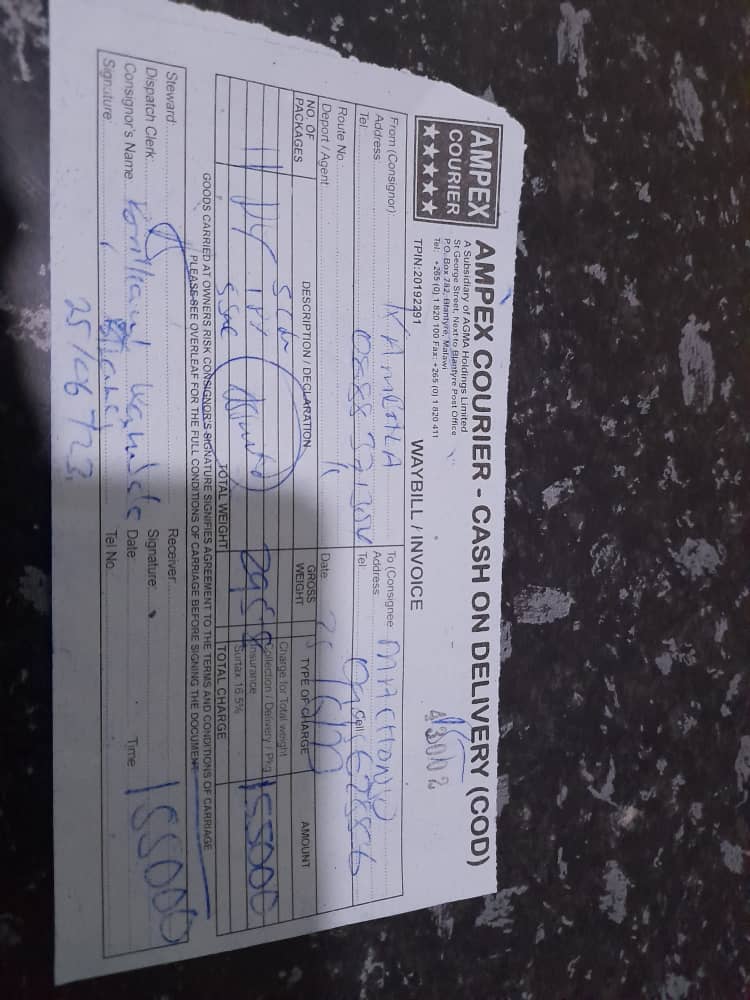 AMPEX
COURIER
★★★★★
AMPEX COURIER - CASH ON DELIVERY (COD)
A Subsidiary of AGMA Holdings Limited
St George Street, Next to Blantyre Post Office
P.O. Box 782, Blantyre, Malawi
Tel: +265 (0) 1 820 100 Fax: +265 (0) 1 820 411
43002
TPIN:20192291
WAYBILL / INVOICE
From (Consignor):
Address:
Tel: 0888
To (Consignee
Address:
Tel: Cell
Route No.
Deport / Agent
Date:
NO. OF PACKAGES
DESCRIPTION / DECLARATION
GROSS WEIGHT
TYPE OF CHARGE
AMOUNT
Charge for Total weight
Collection / Delivery / Pkg
Insurance
Surtax 16.5%
155000
TOTAL WEIGHT
TOTAL CHARGE
GOODS CARRIED AT OWNERS RISK CONSIGNOR'S SIGNATURE SIGNIFIES AGREEMENT TO THE TERMS AND CONDITIONS OF CARRIAGE
PLEASE SEE OVERLEAF FOR THE FULL CONDITIONS OF CARRIAGE BEFORE SIGNING THE DOCUMENT
Steward:
Dispatch Clerk:
Consignor's Name
Signature:
Receiver:
Signature:
Date: Time 155000
Tel No.
25/06/23